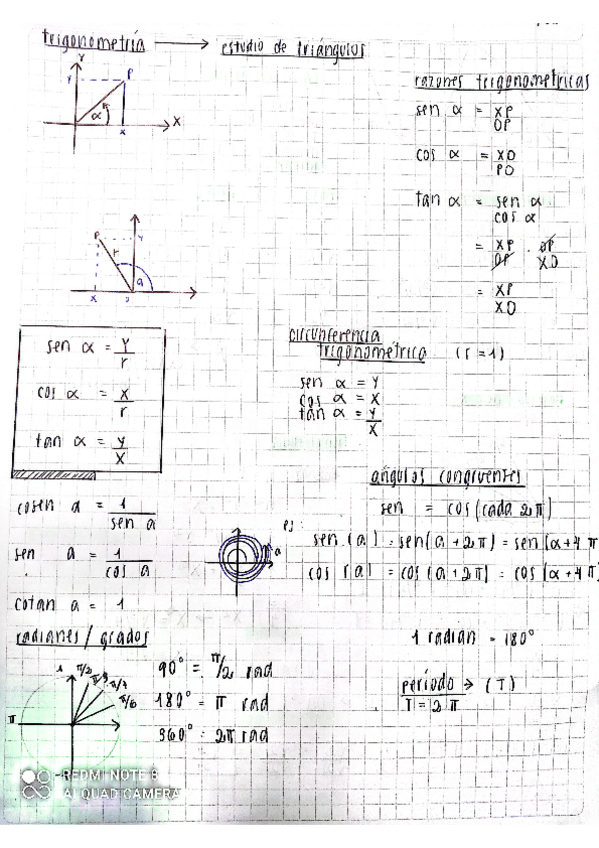 trigonometría → estudio de triángulos
Y
Y P
α
X X
razones trigonometricas
sen α = XP
OP
cos α = XO
PO
tan α = sen α
cos α
= XP . OP
OP XO
= XP
XO
P Y
r
a
X
sen α = Y
r
cos α = X
r
tan α = Y
X
circunferencia
trigonométrica (r=1)
sen α = Y
cos α = X
tan α = Y
X
ángulos congruentes
sen = cos (cada 2π)
ej:
sen (a) = sen(a + 2π) = sen(α+4π
cos (a) = cos (a + 2π) = cos (α + 4π
cosen a = 1
sen a
sen a = 1
cos a
cotan a = 1
radianes / grados
1 radian = 180°
90° = π/2 rad
180° = π rad
360° = 2π rad
período → (T)
T = 2π
1 π/2 π/3
π/6
π
REDMI NOTE 8
AI QUAD CAMERA